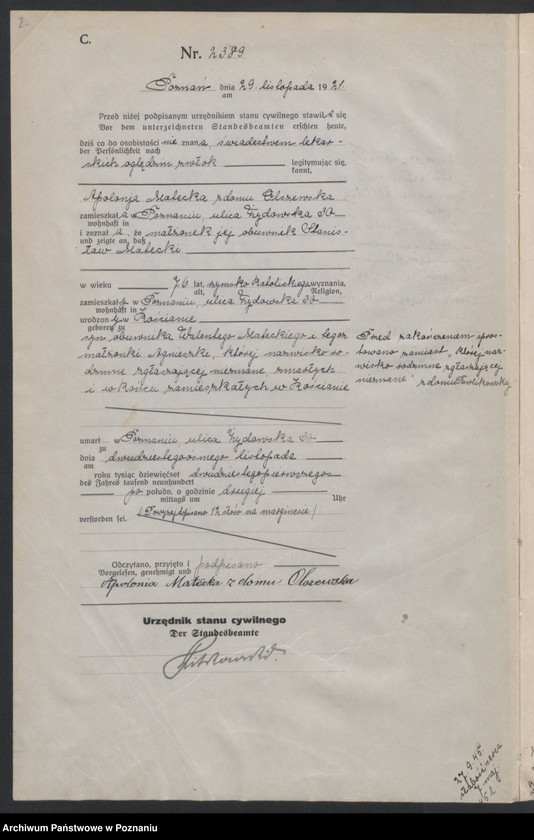 2.
C.
Nr. 2389
Poznań dnia 29 listopada 1921.
am
Przed niżej podpisanym urzędnikiem stanu cywilnego stawił a się
Vor dem unterzeichneten Standesbeamten erschien heute,
dziś co do osobistości nie znana, świadectwem lekar-
der Persönlichkeit nach
skich oględzin zwłok legitymując się,
kannt,
Apolonja Małecka z domu Olszewska
zamieszkał a w Poznaniu, ulica Żydowska 30
wohnhaft in
i zeznał a, że małżonek jej obuwnik Stanis-
und zeigte an, daß
ław Małecki
w wieku 76 lat, rzymsko katolickiego wyznania,
alt, Religion,
zamieszkał y w Poznaniu, ulica Żydowska 30
wohnhaft in
urodzon y w Kościanie
geboren zu
syn obuwnika Walentego Małeckiego i tegoż
małżonki Agnieszki, której nazwisko ro-
dzinne zgłaszającej nieznane, zmarłych
i w końcu zamieszkałych w Kościanie
Przed zakończeniem spros-
towano zamiast "której naz-
wisko rodzinne zgłaszającej
nieznane" z domu
umarł w Poznaniu ulica Żydowska 30
zu
dnia dwudziestegoósmego listopada
am
roku tysiąc dziewięćset dwudziestegopierwszego
des Jahres tausend neunhundert
po połudn. o godzinie drugiej
mittags um Uhr
verstorben sei. (Powyżej dopisano 12 słów na marginesie)
Odczytano, przyjęto i podpisano
Vorgelesen, genehmigt und
Apolonia Małecka z domu Olszewska
Urzędnik stanu cywilnego
Der Standesbeamte
27.9.45
Archiwum Państwowe w Poznaniu